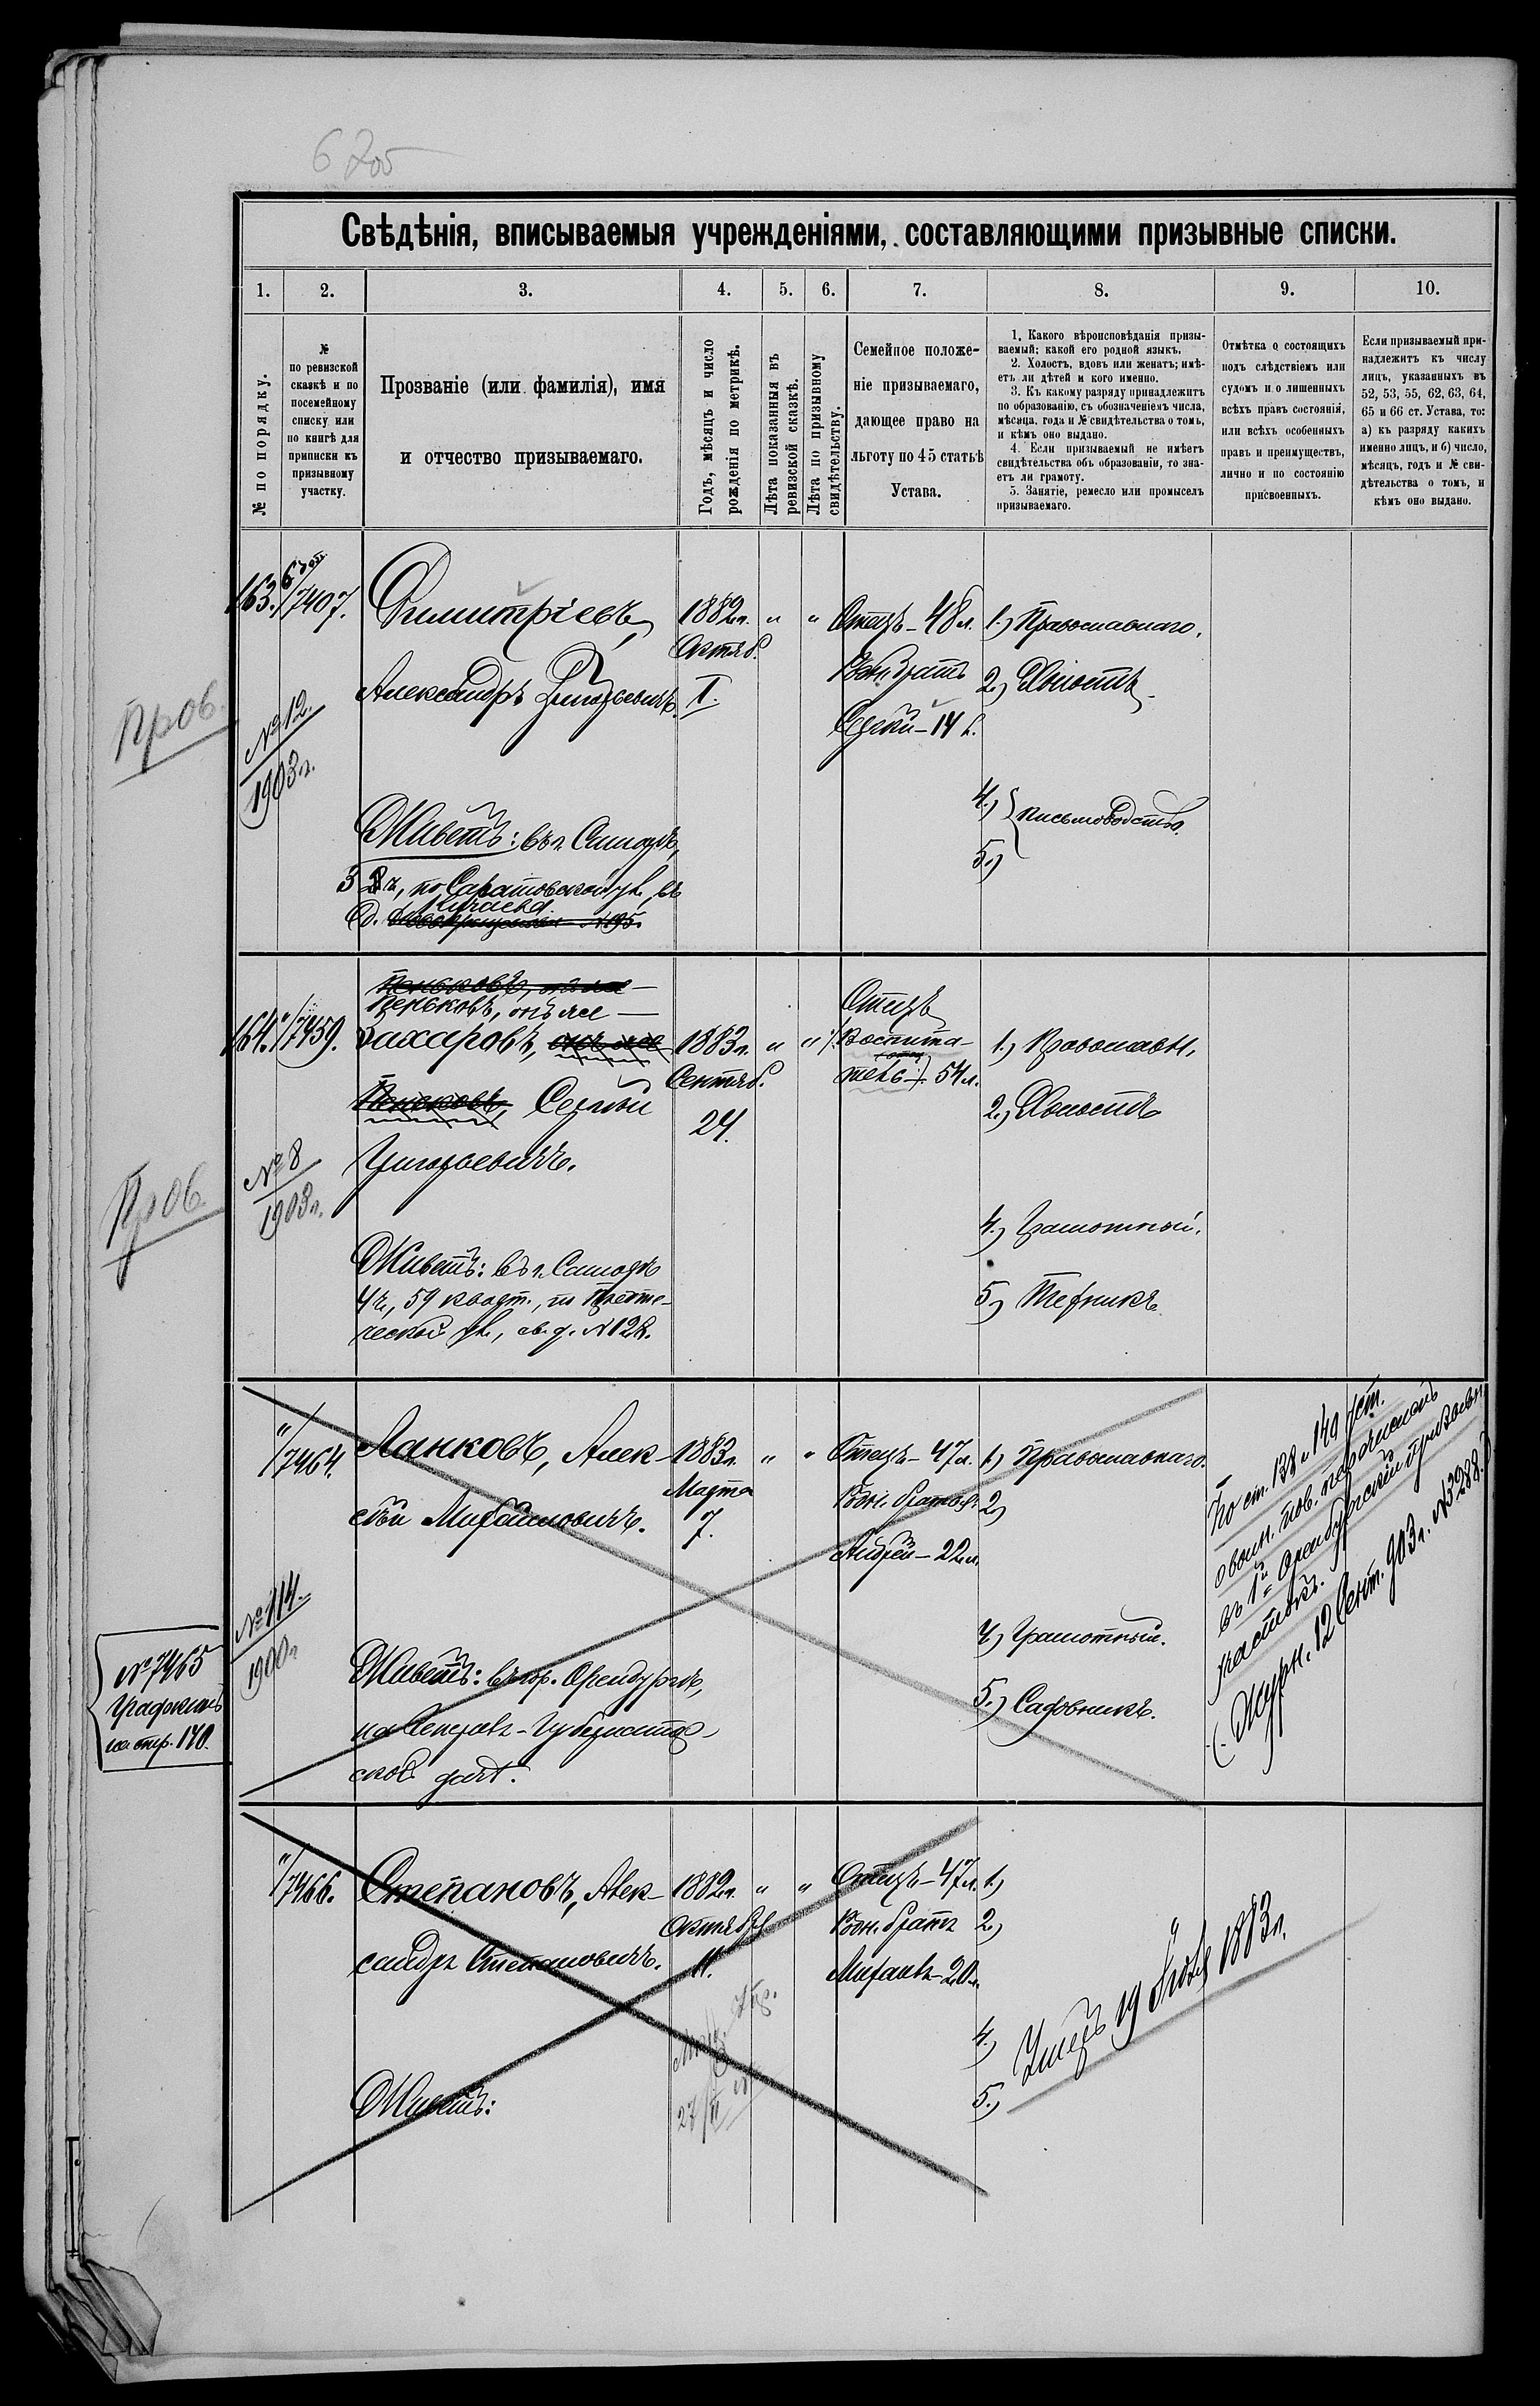 6 доб
Свѣдѣнія, вписываемыя учрежденіями, составляющими призывные списки.
1. 2. 3. 4. 5. 6. 7. 8. 9. 10.
№ по порядку.
№
по ревизской
сказкѣ и по
посемейному
списку или
по книгѣ для
приписки къ
призывному
участку.
Прозваніе (или фамилія), имя
и отчество призываемаго.
Годъ, мѣсяцъ и число
рожденія по метрикѣ.
Лѣта показанныя въ
ревизской сказкѣ.
Лѣта по призывному
свидѣтельству.
Семейное положе-
ніе призываемаго,
дающее право на
льготу по 45 статьѣ
Устава.
1. Какого вѣроисповѣданія призы-
ваемый; какой его родной языкъ.
2. Холостъ, вдовъ или женатъ; имѣ-
етъ ли дѣтей и кого именно.
3. Къ какому разряду принадлежитъ
по образованію, съ обозначеніемъ числа,
мѣсяца, года и № свидѣтельства о томъ,
и кѣмъ оно выдано.
4. Если призываемый не имѣетъ
свидѣтельства объ образованіи, то зна-
етъ ли грамоту.
5. Занятіе, ремесло или промыселъ
призываемаго.
Отмѣтка о состоящихъ
подъ слѣдствіемъ или
судомъ и о лишенныхъ
всѣхъ правъ состоянія,
или всѣхъ особенныхъ
правъ и преимуществъ,
лично и по состоянію
присвоенныхъ.
Если призываемый при-
надлежитъ къ числу
лицъ, указанныхъ въ
52, 53, 55, 62, 63, 64,
65 и 66 ст. Устава, то:
а) къ разряду какихъ
именно лицъ, и б) число,
мѣсяцъ, годъ и № сви-
дѣтельства о томъ, и
кѣмъ оно выдано.
163. 6 доб/7407.
Димитріевъ,
Александръ Григорьевичъ.
1882 г.
Октяб.
1.
" "
Отецъ – 48 л.
Родн. братъ
Сергѣй – 14 л.
1.) Православнаго.
2.) Холостъ
4.) письмоводство.
5.)
Пров.
№ 12.
1903 г.
Живетъ: въ г. Самарѣ,
3 ч., по Саратовской ул., въ
д.
№ 195.
164. "/7459.
Пеньковъ, онъ же
Пеньковъ, онъ же –
Захаровъ, онъ же
Пеньковъ, Сергѣй
Григорьевичъ.
1883 г.
Сентяб.
24.
" "
Отецъ
Воспита-
тель – 54 л.
1.) Православн.
2.) Холостъ
4.) Грамотный.
5.)
Пров.
№ 8
1903 г.
Живетъ: въ г. Самарѣ
4 ч., 59 кварт., по
ческой ул., св. д. № 128.
"/7464.
Ланковъ, Алек-
сѣй Михайловичъ.
1883 г.
Марта
7.
" "
Отецъ – 47 л.
Родн. братъ
Андрей – 22 л.
1.) Православнаго.
2.)
4.) Грамотный.
5.) Садовникъ.
По ст. 138 и 140 Уст.
о воин. пов. перечисленъ
въ 1й Оренбургскій призывн.
участокъ.
(Журн. 12 Сент. 903 г. № 3288.)
№ 114.
1900 г.
№ 7465
на стр. 170.
Живетъ: въ гор. Оренбургѣ,
на Генералъ-Губернатор-
ской дачѣ.
"/7466.
Степановъ, Алек-
сандръ Степановичъ.
1882 г.
Октября
11.
" "
Отецъ – 47 л.
Родн. братъ
Михаилъ – 20 л.
1.)
2.)
4.)
5.)
Умеръ 19 Іюля 1883 г.
Живетъ: